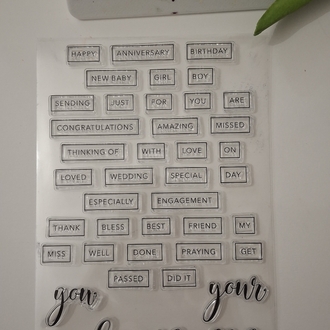 HAPPY ANNIVERSARY BIRTHDAY
NEW BABY GIRL BOY
SENDING JUST FOR YOU ARE
CONGRATULATIONS AMAZING MISSED
THINKING OF WITH LOVE ON
LOVED WEDDING SPECIAL DAY
ESPECIALLY ENGAGEMENT
THANK BLESS BEST FRIEND MY
MISS WELL DONE PRAYING GET
PASSED DID IT
you your